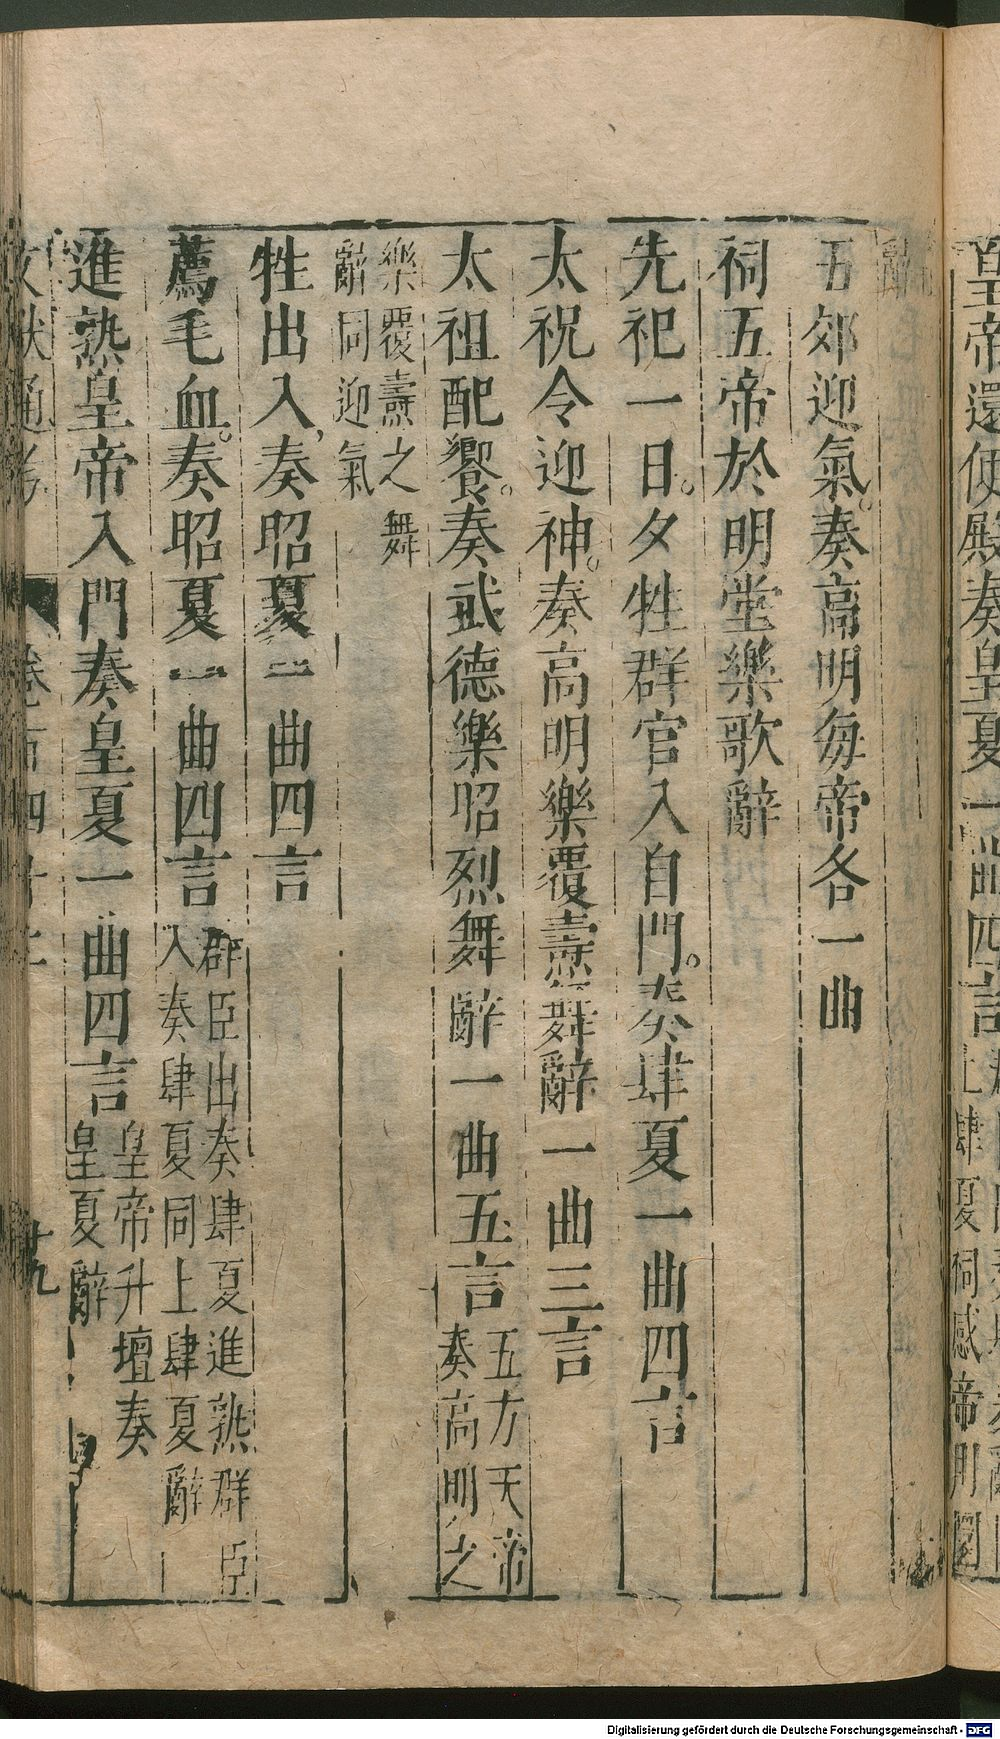 皇帝還便殿奏皇夏一曲四言
辭
五郊迎氣奏高明每帝各一曲
祠五帝於明堂樂歌辭
先祀一日夕牲群官入自門奏肆夏一曲四言
太祝令迎神奏高明樂覆燾舞辭一曲三言
太祖配饗奏武德樂昭烈舞辭一曲五言五方天帝
奏高明之
樂覆燾之舞
辭同迎氣
牲出入奏昭夏一曲四言
薦毛血奏昭夏一曲四言群臣出奏肆夏進熟群臣
入奏肆夏同上肆夏辭
進熟皇帝入門奏皇夏一曲四言皇帝升壇奏
皇夏辭
文獻通考
十九
Digitalisierung gefördert durch die Deutsche Forschungsgemeinschaft - DFG